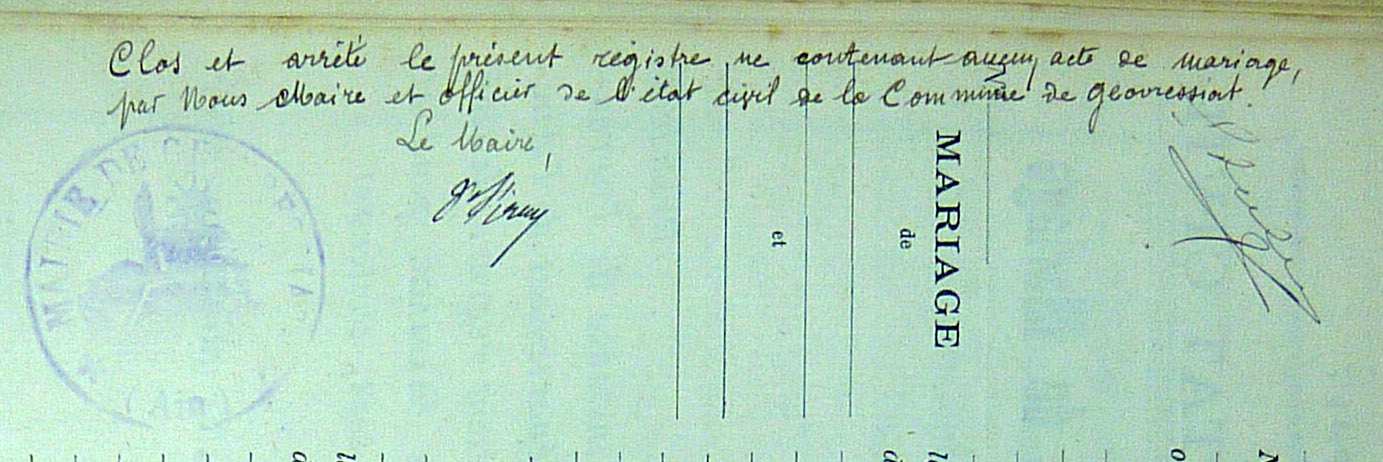 Clos et arrêté le présent régistre ne contenant aucun acte de mariage,
par Nous Maire et officier de l'état civil de la Commune de Géovressiat.
Le Maire,
MARIAGE
de
et
MAIRIE DE
(Ain)